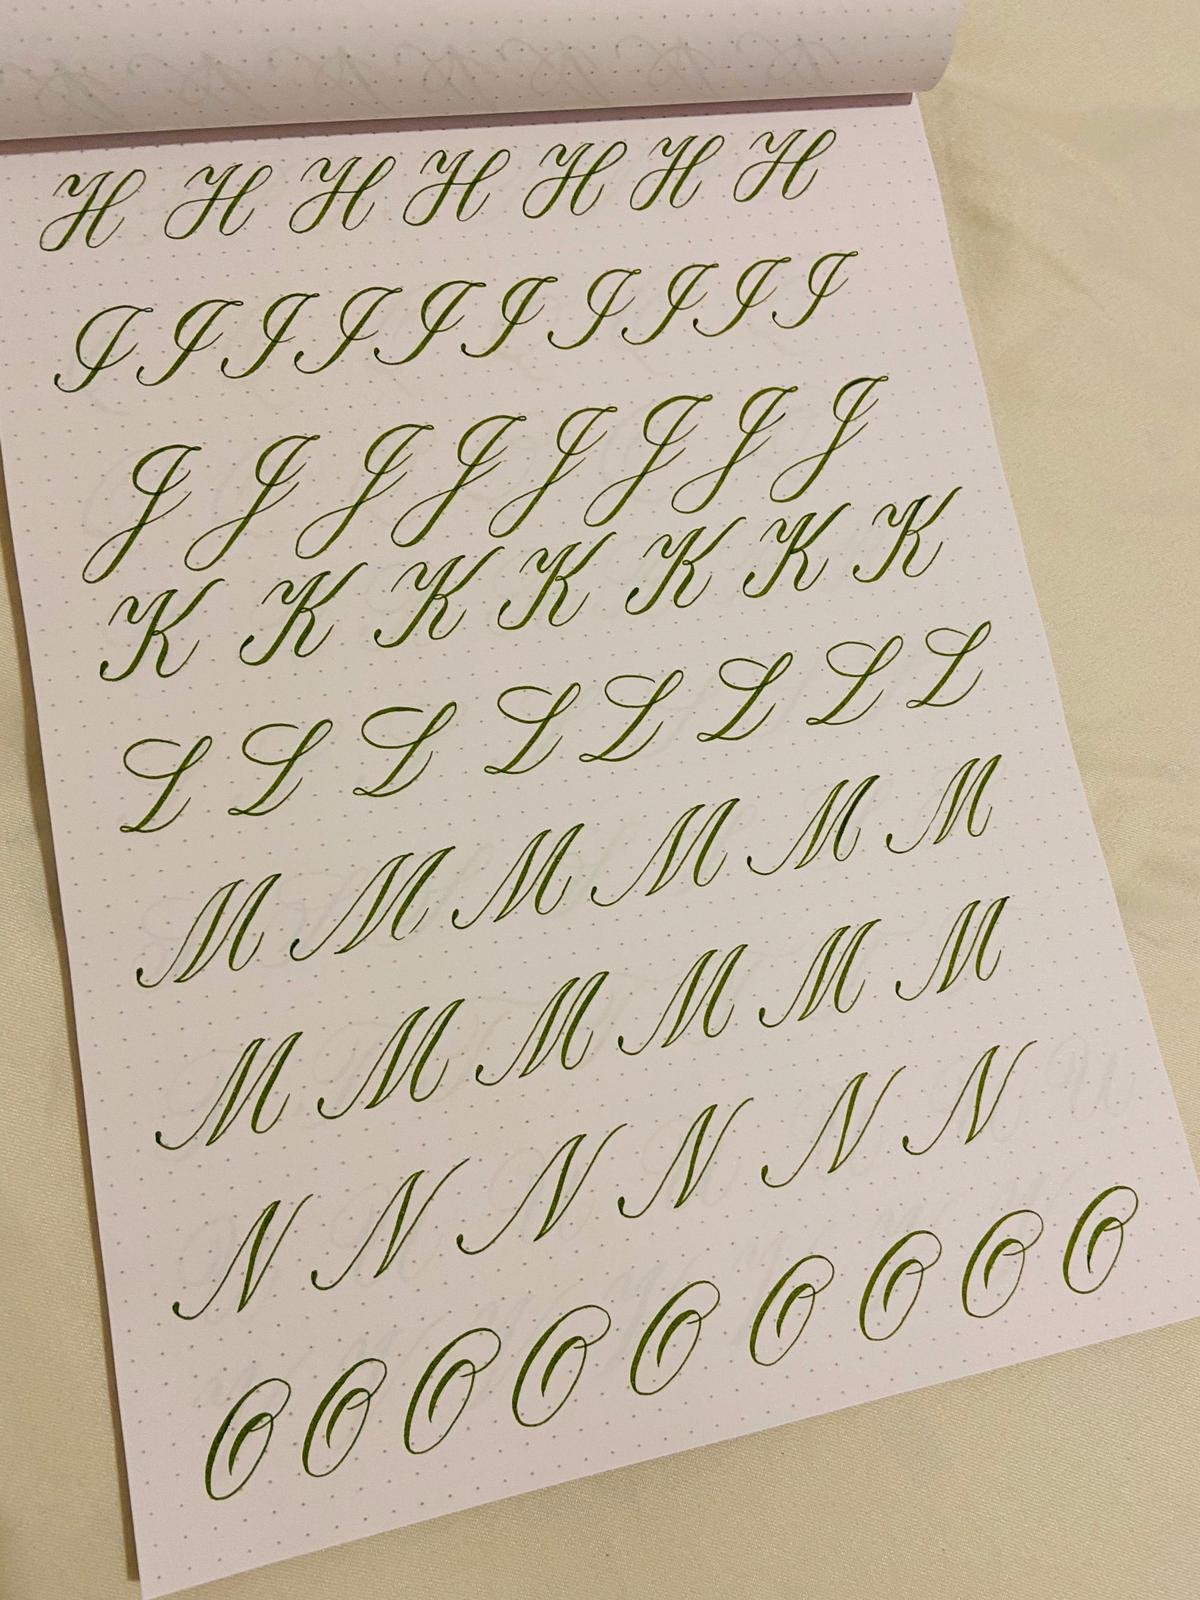 H H H H H H H
I I I I I I I I I I
J J J J J J J J
K K K K K K K
L L L L L L L L
M M M M M M M
M M M M M M
N N N N N N
O O O O O O O O